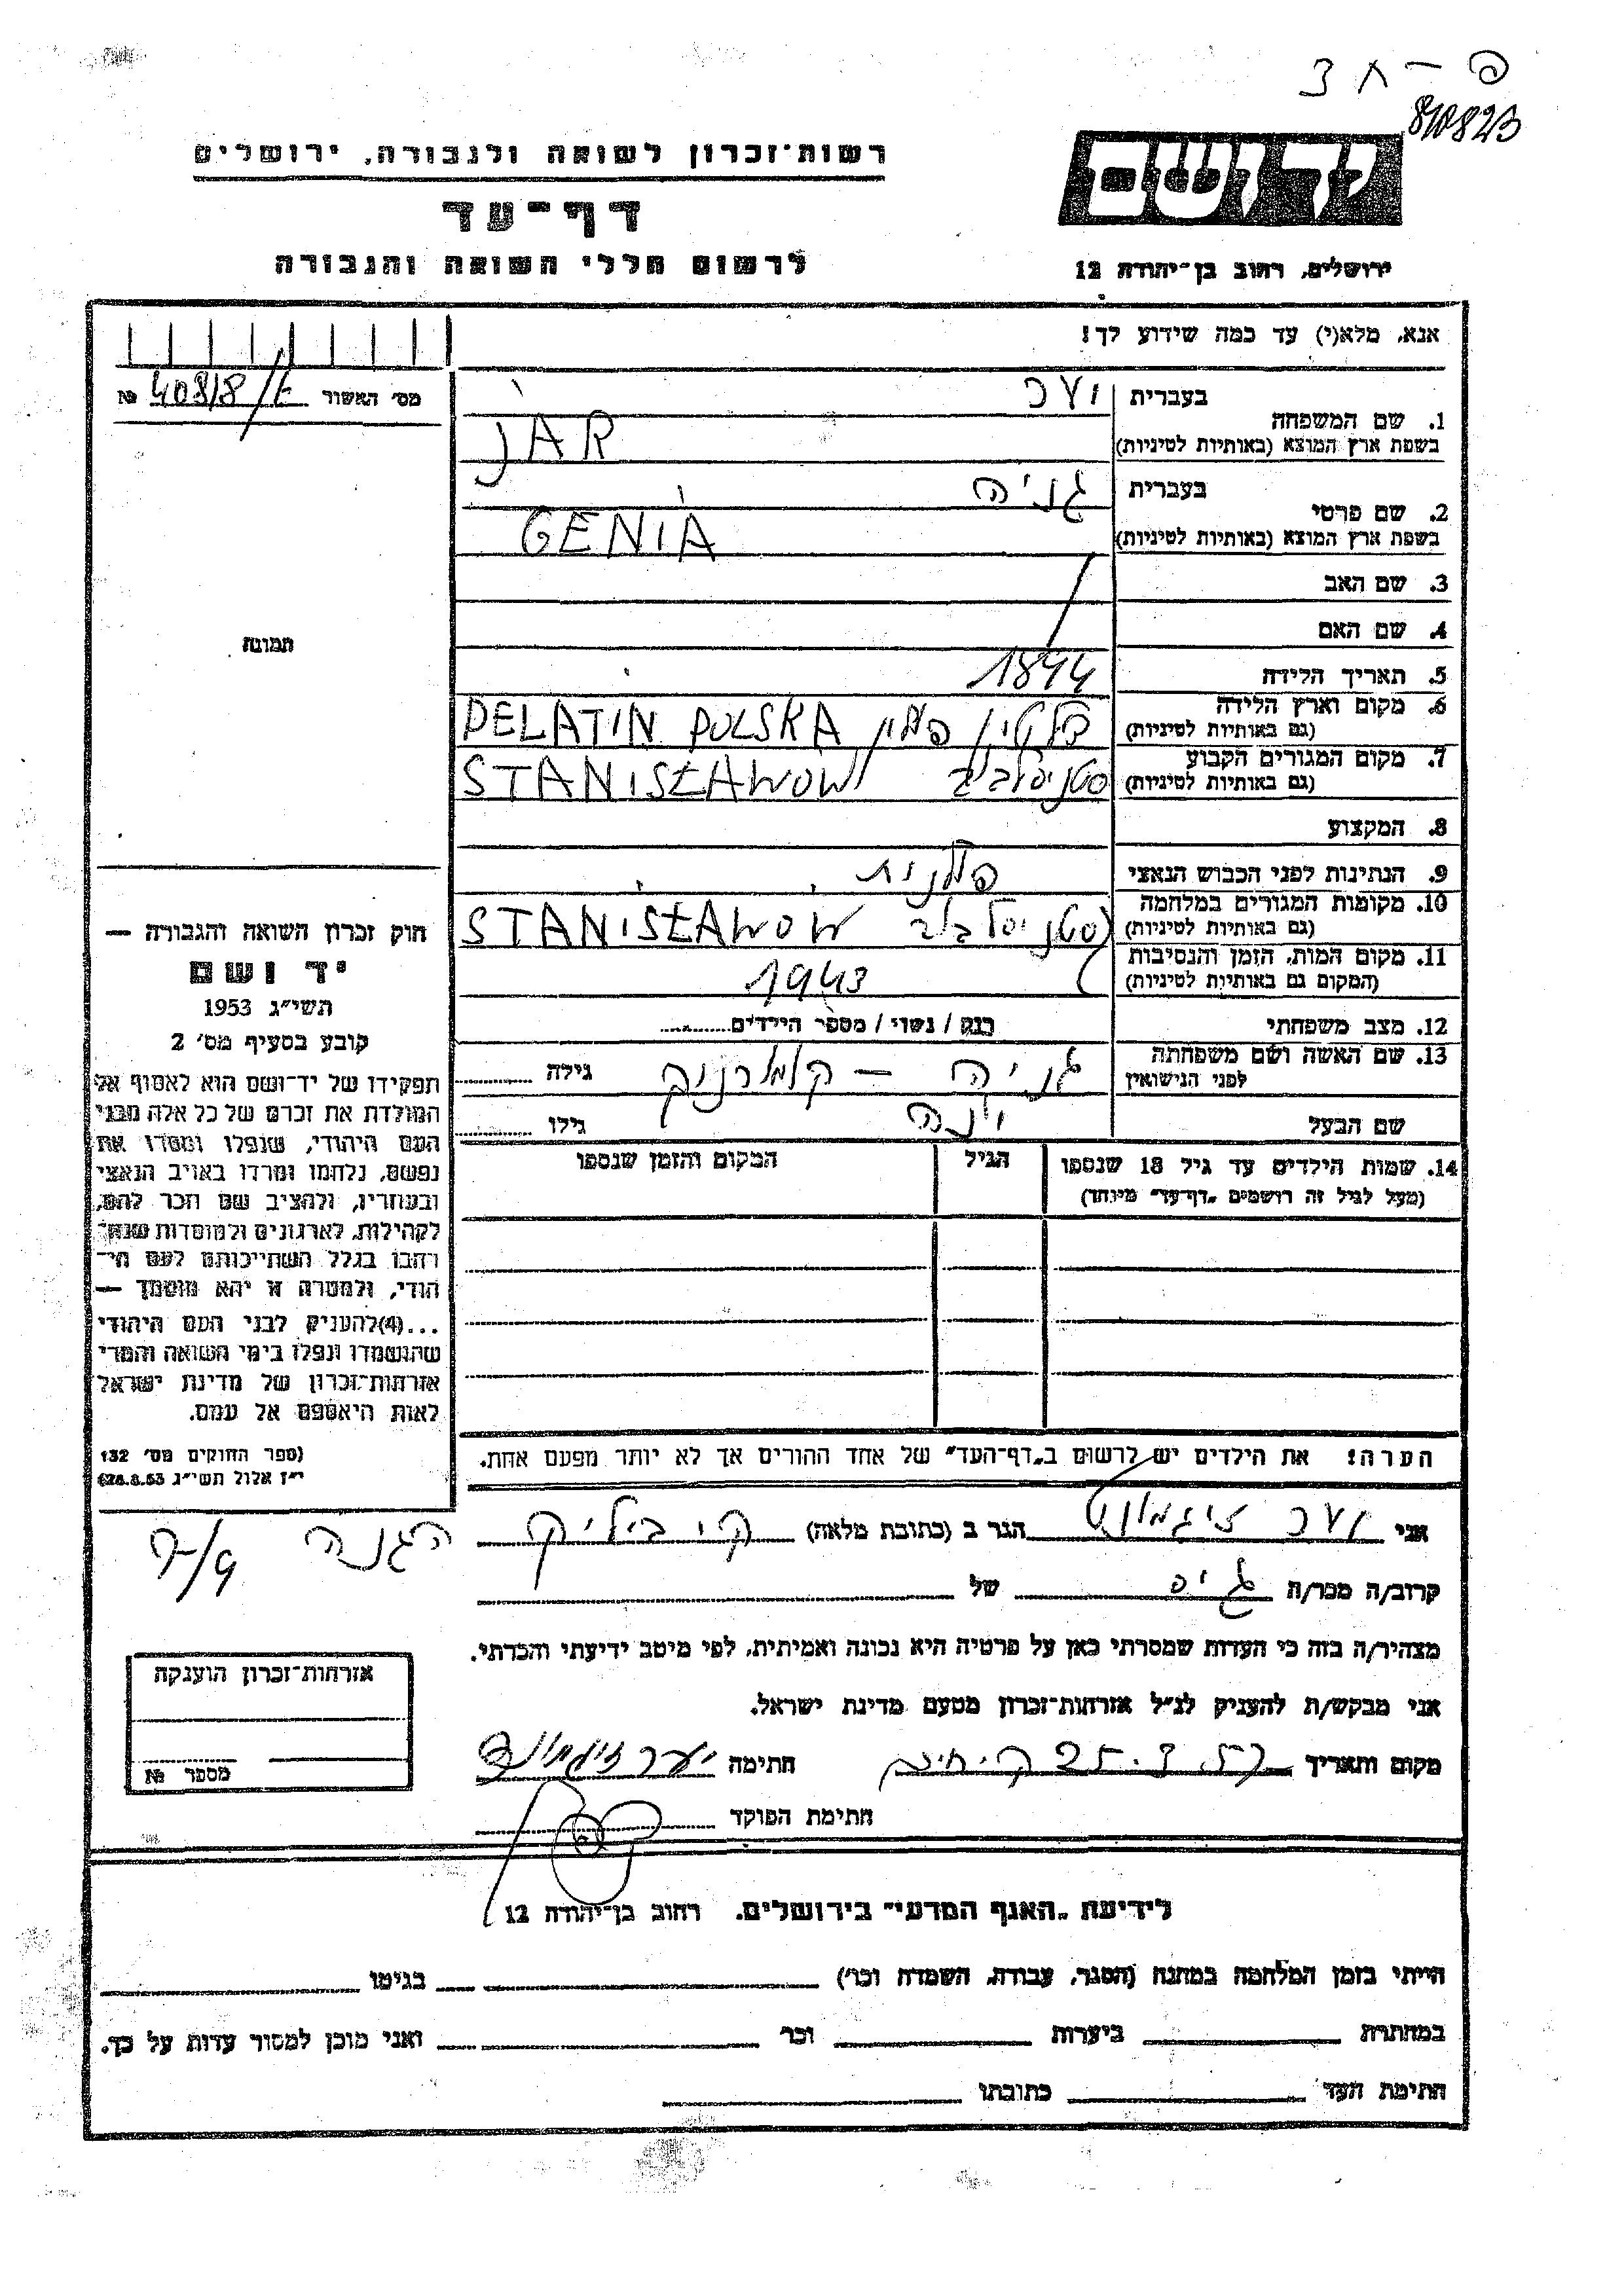 810823
יד ושם
ירושלים, רחוב בן־יהודה 12
רשות־זכרון לשואה ולגבורה, ירושלים
דף־עד
לרשום חללי השואה והגבורה
אנא, מלא(י) עד כמה שידוע לך!
מס' האשור 40818/ №
תמונה
חוק זכרון השואה והגבורה —
יד ושם
תשי"ג 1953
קובע בסעיף מס' 2
תפקידו של יד־ושם הוא לאסוף אל
המולדת את זכרם של כל אלה מבני
העם היהודי, שנפלו ומסרו את
נפשם, נלחמו ומרדו באויב הנאצי
ובעוזריו, ולהציב שם וזכר להם,
לקהילות, לארגונים ולמוסדות שנח־
רבו בגלל השתייכותם לעם הי־
הודי, ולמטרה זו יהא מוסמך —
...(4)להעניק לבני העם היהודי
שהושמדו ונפלו בימי השואה והמרי
אזרחות־זכרון של מדינת ישראל
לאות היאספם אל עמם.
(ספר החוקים מס' 132
י"ז אלול תשי"ג 28.8.53)
1. שם המשפחה
בעברית
בשפת ארץ המוצא (באותיות לטיניות) JAR
2. שם פרטי
בעברית גניה
בשפת ארץ המוצא (באותיות לטיניות) GENIA
3. שם האב
4. שם האם
5. תאריך הלידה 1894
6. מקום וארץ הלידה
(גם באותיות לטיניות) פולין DELATIN POLSKA
7. מקום המגורים הקבוע
(גם באותיות לטיניות) סטניסלבוב STANISŁAWOW
8. המקצוע
9. הנתינות לפני הכבוש הנאצי פולנית
10. מקומות המגורים במלחמה
(גם באותיות לטיניות) סטניסלבוב STANISŁAWOW
11. מקום המות, הזמן והנסיבות
(המקום גם באותיות לטיניות) 1943
12. מצב משפחתי רוק / נשוי / מספר הילדים..........
13. שם האשה ושם משפחתה
לפני הנישואין גניה — גילה
שם הבעל יונה גילו
14. שמות הילדים עד גיל 18 שנספו
(מעל לגיל זה רושמים „דף־עד" מיוחד)
הגיל
המקום והזמן שנספו
הערה! את הילדים יש לרשום ב„דף־העד" של אחד ההורים אך לא יותר מפעם אחת.
אני זיגמונט הגר ב (כתובת מלאה) ק׳ ביאליק הגנה
קרוב/ה מכר/ה של
מצהיר/ה בזה כי העדות שמסרתי כאן על פרטיה היא נכונה ואמיתית, לפי מיטב ידיעתי והכרתי.
אני מבקש/ת להעניק לנ"ל אזרחות־זכרון מטעם מדינת ישראל.
מקום ותאריך חתימה
חתימת הפוקד
אזרחות־זכרון הוענקה
מספר №
לידיעת „האגף המדעי" בירושלים. רחוב בן־יהודה 12
הייתי בזמן המלחמה במחנה (הסגר, עבודה, השמדה וכו') בגיטו
במחתרת ביערות וכו' ואני מוכן למסור עדות על כך.
חתימת העד כתובתו